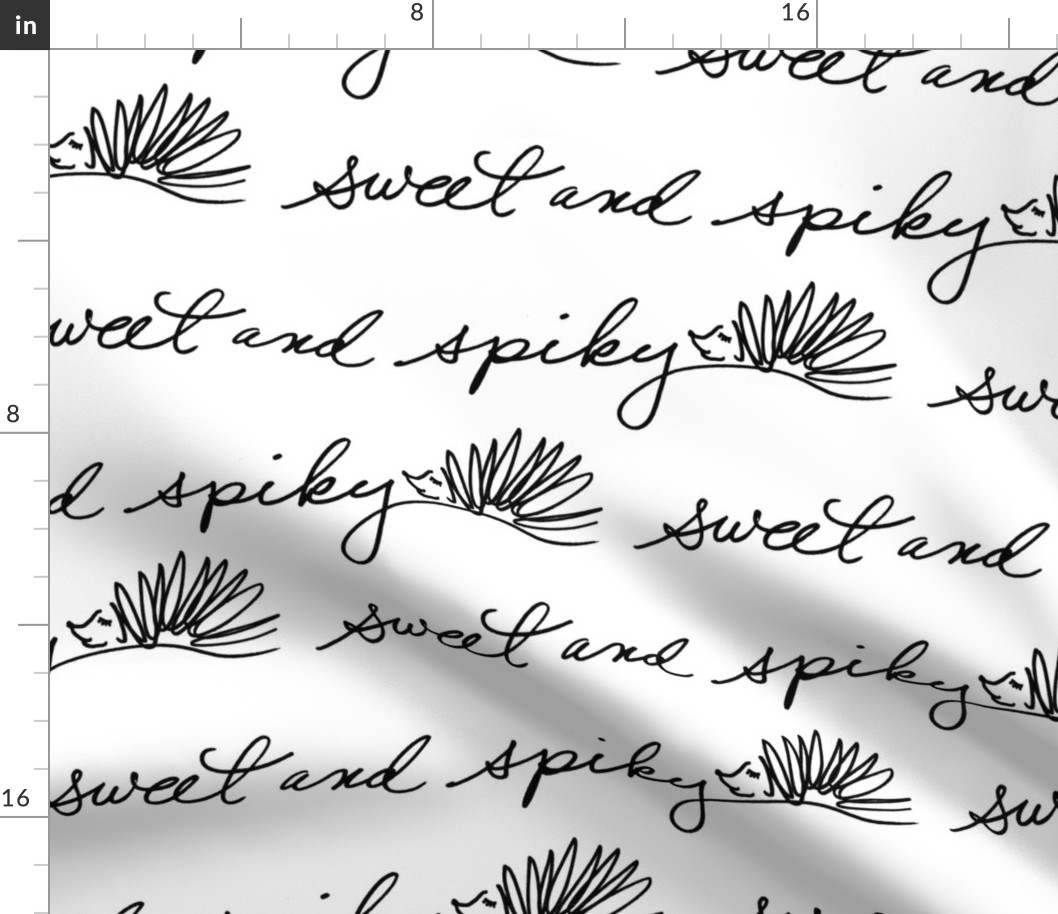 in
8
16
8
16
sweet and
sweet and spiky
weet and spiky sw
d spiky sweet and
sweet and spiky
sweet and spiky sw